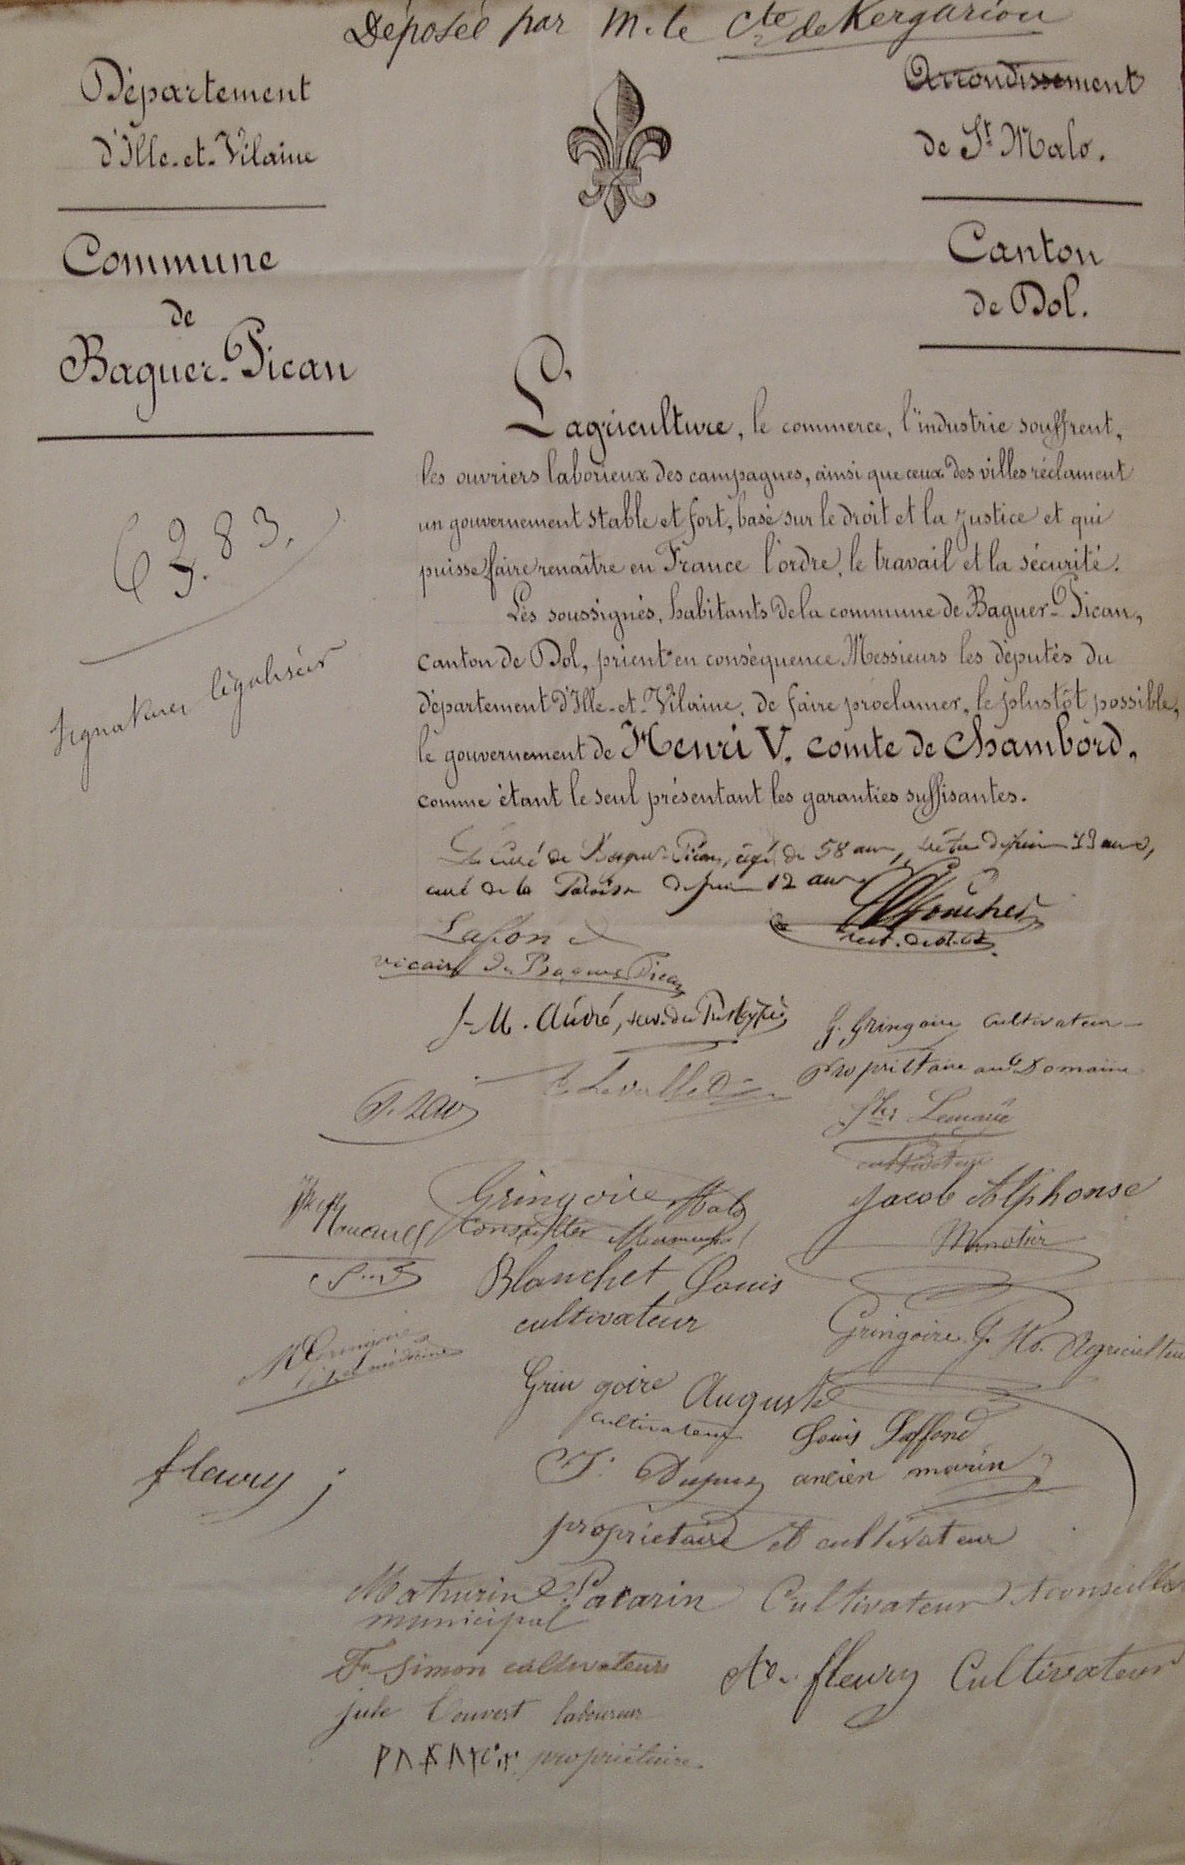 Déposée par M. le Cte de Kergariou
Département
d'Ille-et-Vilaine
Commune
de
Baguer-Pican
Arrondissement
de St Malo.
Canton
de Dol.
6283.
Signatures légalisées
L'agriculture, le commerce, l'industrie souffrent,
les ouvriers laborieux des campagnes, ainsi que ceux des villes réclament
un gouvernement stable et fort, basé sur le droit et la justice et qui
puisse faire renaître en France l'ordre, le travail et la sécurité.
Les soussignés, habitants de la commune de Baguer-Pican,
canton de Dol, prient en conséquence Messieurs les députés du
département d'Ille-et-Vilaine, de faire proclamer, le plustôt possible,
le gouvernement de Henri V, comte de Chambord,
comme étant le seul présentant les garanties suffisantes.
Le Curé de Baguer-Pican, âgé de 58 ans, depuis ans,
curé de la Paroisse depuis 12 ans
Foucher
Lafon
vicaire de Baguer Pican
J-M. André,
G. Gringoire cultivateur
propriétaire au Domaine
Lemarié
cultivateur
Gringoire Malo
conseiller Municipal
Jacob Alphonse
Minotier
Blanchet Louis
cultivateur
Gringoire Agriculteur
Gringoire Auguste
cultivateur
Louis Laffond
ancien marin
fleury j
propriétaire et cultivateur
Mathurin Patarin Cultivateur et conseiller
municipal
Fs Simon cultivateurs
fleury Cultivateur
jule Couvert laboureur
propriétaire